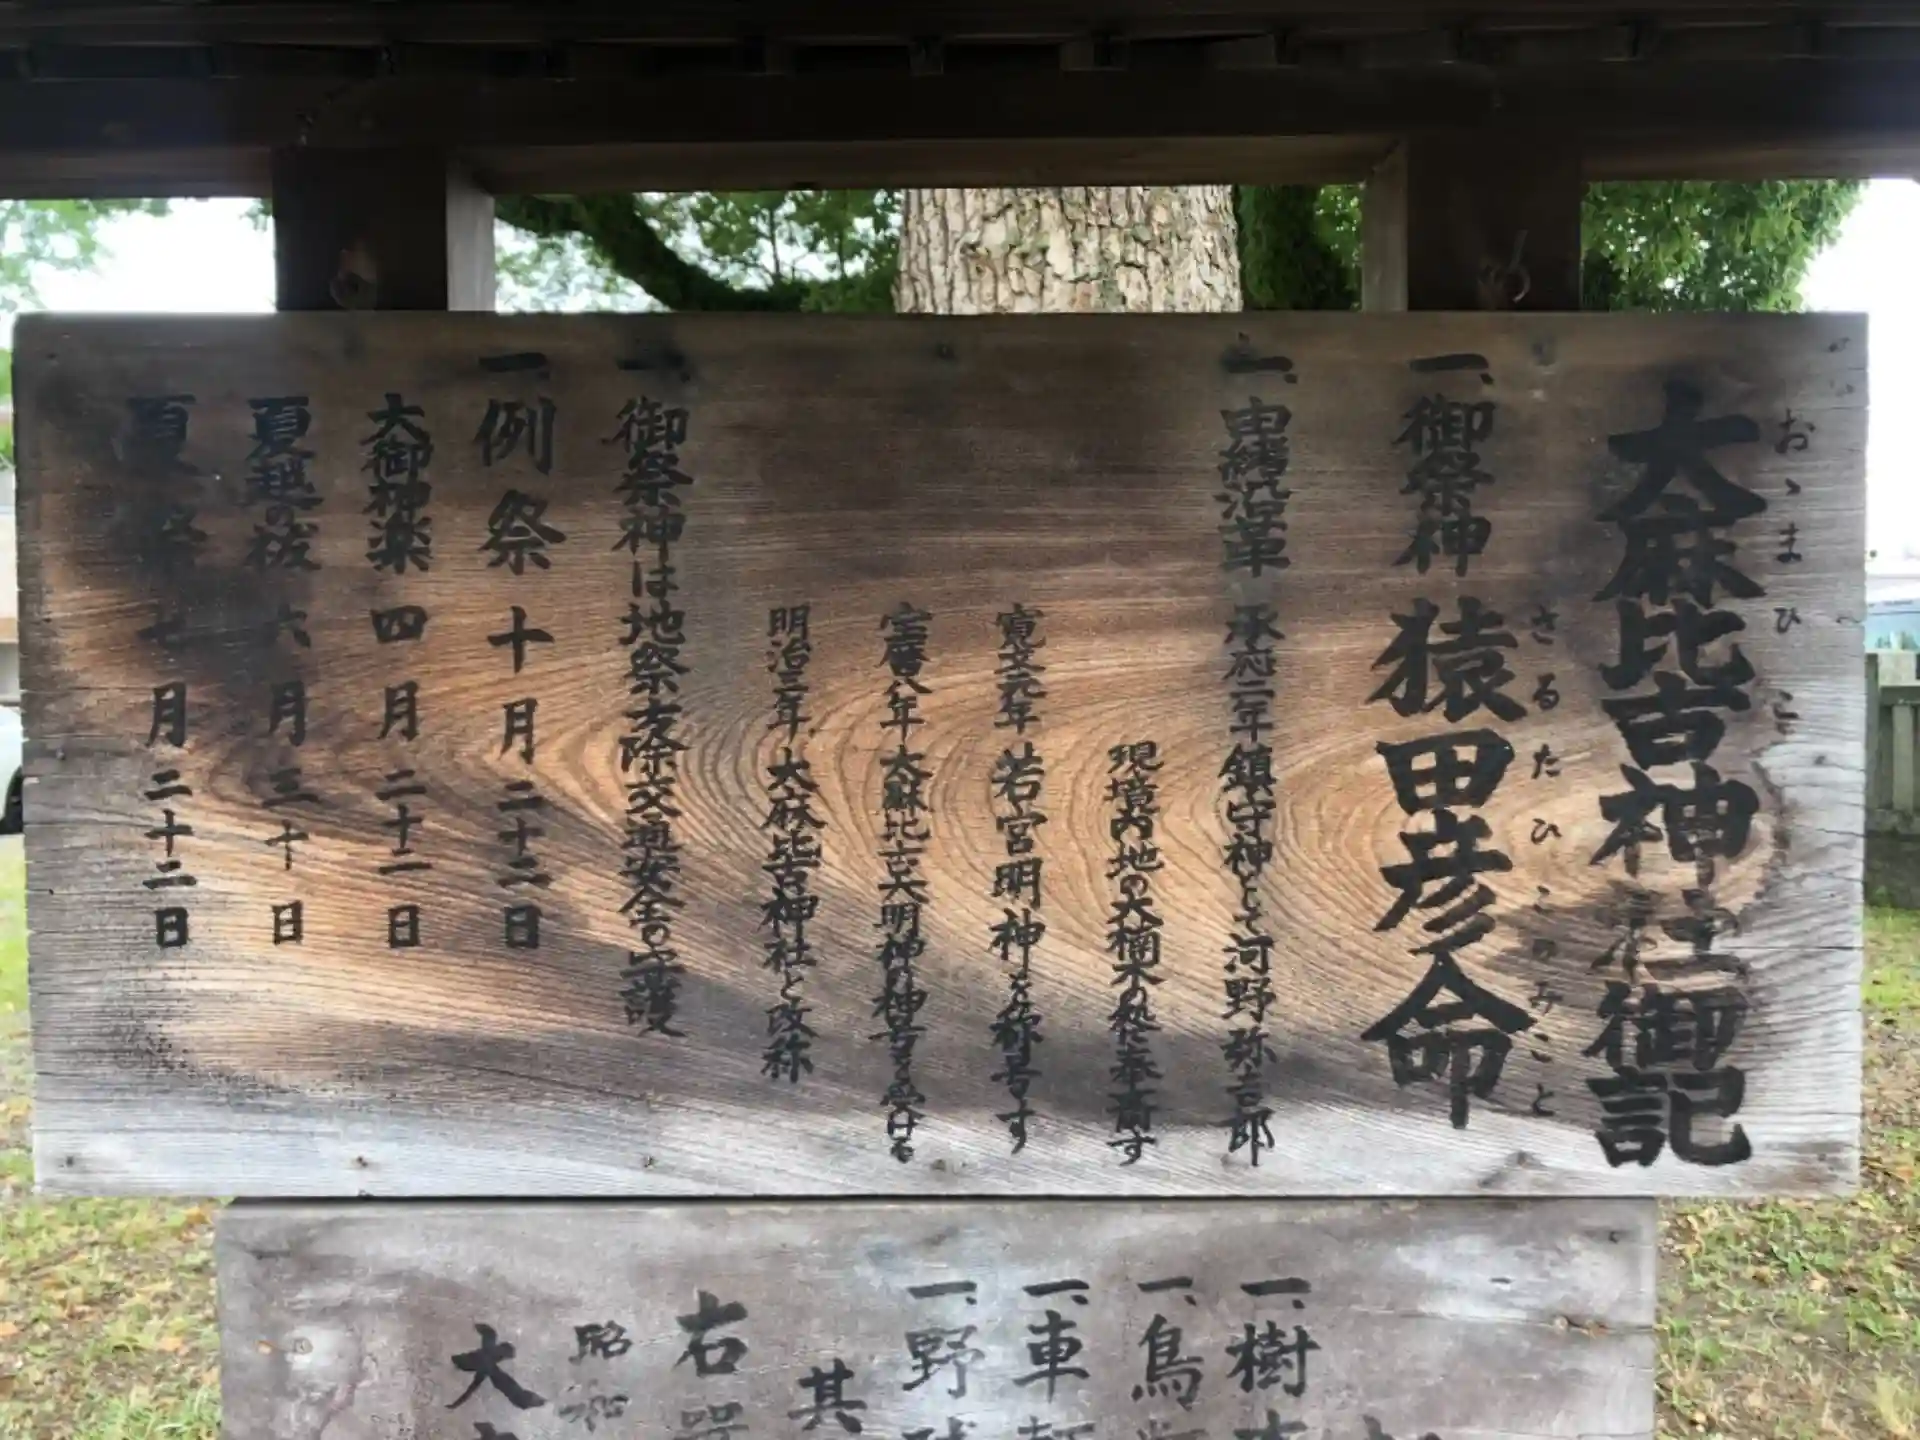 大麻比古神社御記
おゝまひこ
一、御祭神 猿田彦命
さるたひこのみこと
一、由緒沿革 承応二年鎮守神として河野弥吉郎
現境内地の大楠木の懐に奉斎す
寛文元年 若宮明神と称号す
宝暦八年 大麻比古大明神の神号を受ける
明治三年 大麻比古神社と改称
一、御祭神は地祭方除交通安全の守護
一、例祭 十月二十二日
大御神楽 四月二十二日
夏越の祓 六月三十日
夏祭 七月二十二日
一、樹
一、鳥
一、車
一、野球
其
右
大